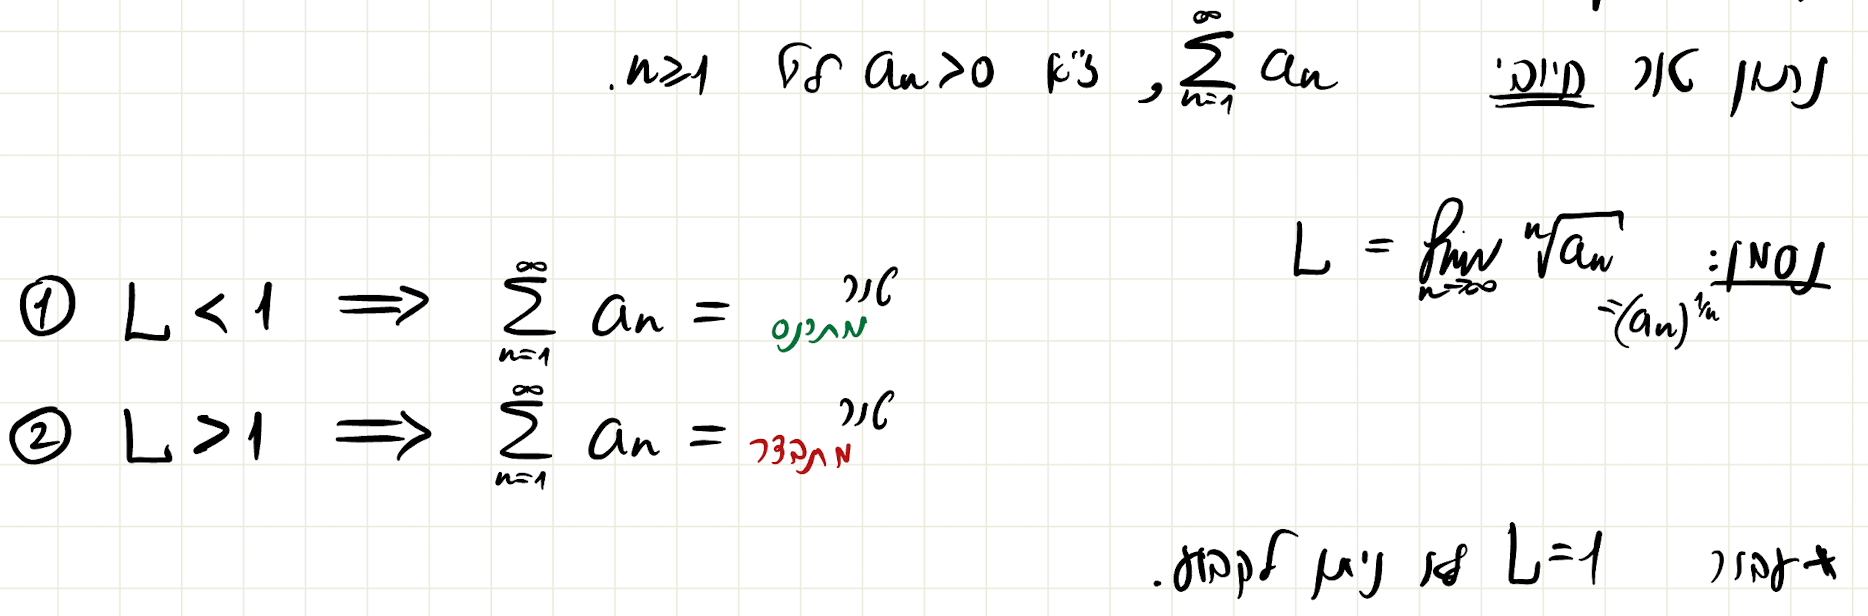 נתון טור חיובי $\sum_{n=1}^{\infty} a_n$, ז"א $a_n > 0$ לכל $n \geq 1$.
נסמן: $L = \lim_{n \to \infty} \sqrt[n]{a_n} = (a_n)^{1/n}$
① $L < 1 \implies \sum_{n=1}^{\infty} a_n =$ טור מתכנס
② $L > 1 \implies \sum_{n=1}^{\infty} a_n =$ טור מתבדר
* עבור $L = 1$ לא ניתן לקבוע.